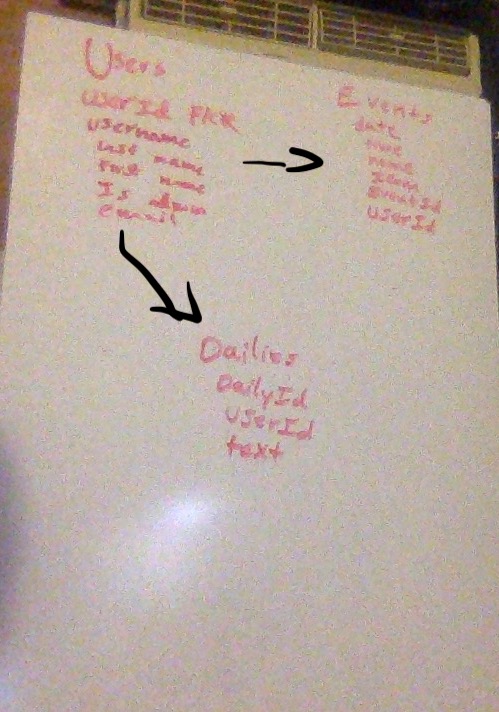 Users
UserId
Username
last name
first name
Is admin
email
Events
date
time
name
EventId
UserId
Dailies
DailyId
UserId
text